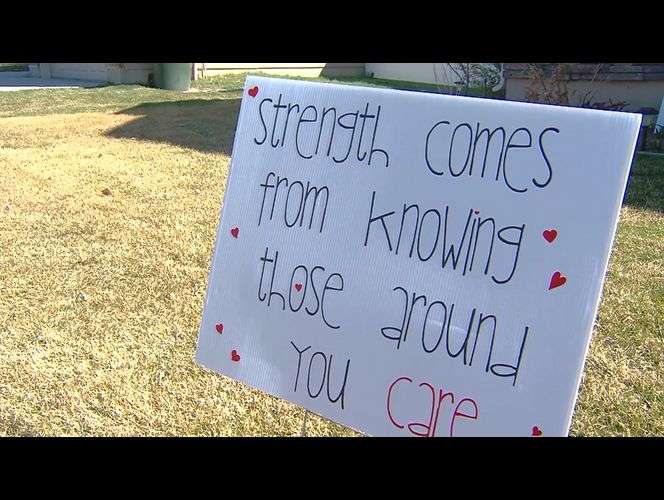 strength comes
from knowing
those around
You care